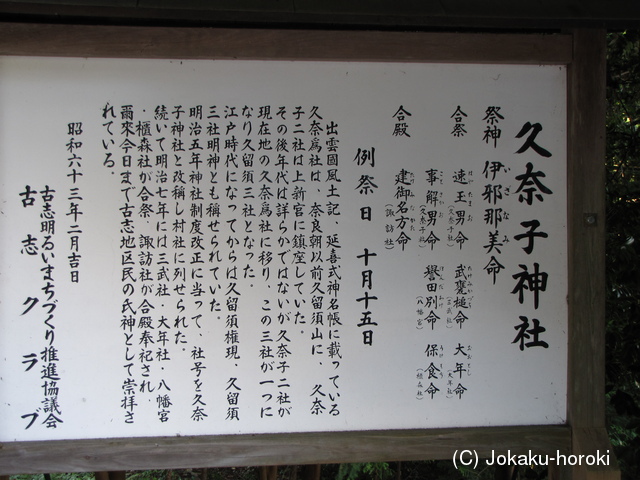 久奈子神社
祭神 伊邪那美命
いざなみ
合祭 速玉男命 武甕槌命 大年命
事解男命 誉田別命 保食命
(久奈子社) (八幡宮) (櫃森社)
合殿 建御名方命
(諏訪社)
例祭日 十月十五日
出雲國風土記、延喜式神名帳に載っている
久奈爲社は、奈良朝以前久留須山に、久奈
子二社は上新宮に鎮座していた。
その後年代は詳らかではないが久奈子二社が
現在地の久奈爲社に移り、この三社が一つに
なり久留須三社となった。
江戸時代になってからは久留須権現、久留須
三社明神とも称せられていた。
明治五年神社制度改正に当って、社号を久奈
子神社と改稱し村社に列せられた。
続いて明治七年には三武社・大年社・八幡宮
・櫃森社が合祭、諏訪社が合殿奉祀され、
爾來今日まで古志地区民の氏神として崇拝さ
れている。
昭和六十三年二月吉日
古志明るいまちづくり推進協議会
古志クラブ
(C) Jokaku-horoki